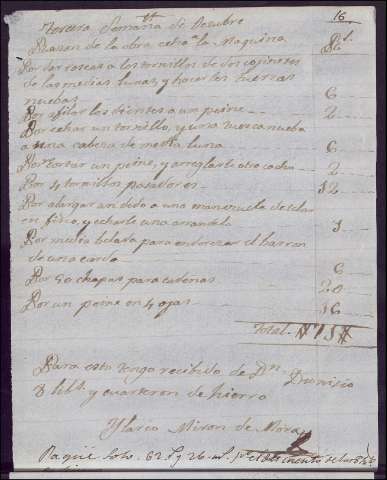 16
Tercera Semana de Octubre
Razon de la obra echa pa la Maquina Rs.
Por dar roscas a los tornillos de dos cojinetes
de las medias lunas, y hacer los tuercas
nuebas 6
Por afilar los dientes a un peine 2
Por echar un tornillo, y una tuerca nueba
a una cabeza de media luna 6
Por cortar un peine, y arreglarle otro 2
Por 4 tornillos pasadores 12
Por alargar un dedo a una manezuela de telar
en fino, y echarle una arandela 3
Por media para enderezar el barron
de una 6
Por 50 chapas para cadenas 20
Por un en 4 ojas 16
Total
Para esto tengo recibido de Dn. Dionisio
8 libs. y quarteron de hierro
Miron de Mora
Pagué solo 62 y 26